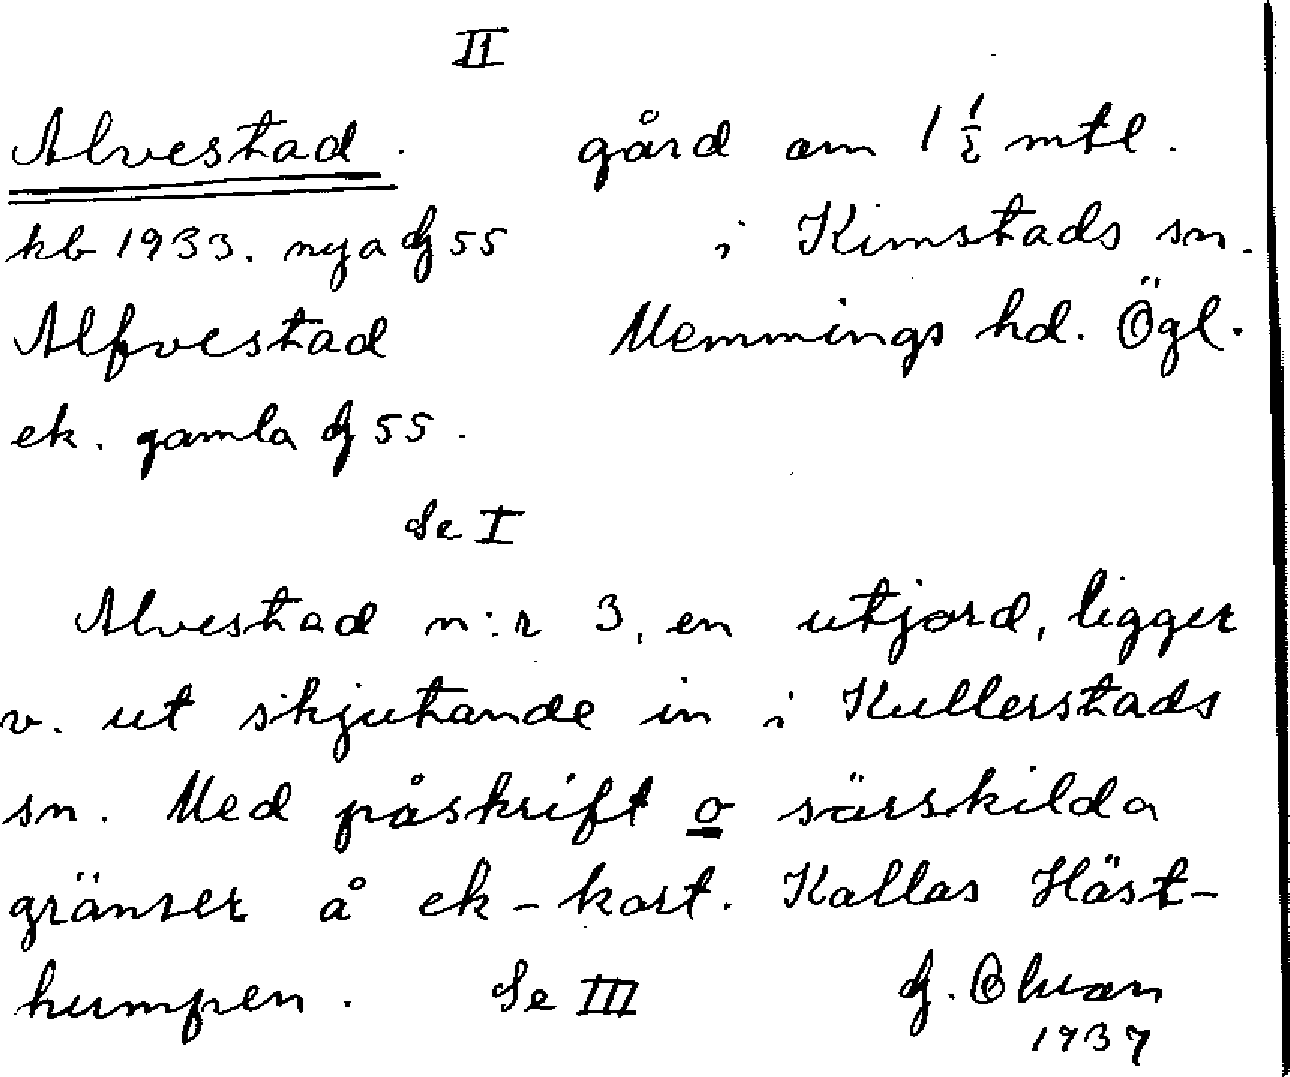 II
Alvestad. gård om 1 1/2 mtl.
kb 1933. nya J 55 i Kimstads sn.
Alfvestad Memmings hd. Ögl.
ek. gamla J 55.
Se I
Alvestad n:r 3, en utjord, ligger
v. ut skjutande in i Kullerstads
sn. Med påskrift o särskilda
gränser å ek-kart. Kallas Häst-
humpen. Se III J. Olson
1937